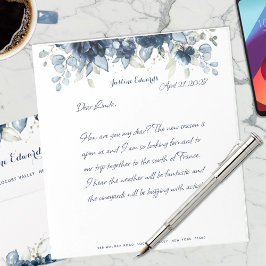 Justine Edwards
April 21, 202?
Dear Linda,
Hou, are you my dear? The new season is
upon us and I am so looking forward to
our trip together to the south of France.
I hear the weather will be fantastic and
the vineyards will be buzzing with action!
Edwards
LOCUST VALLEY
NEW YORK